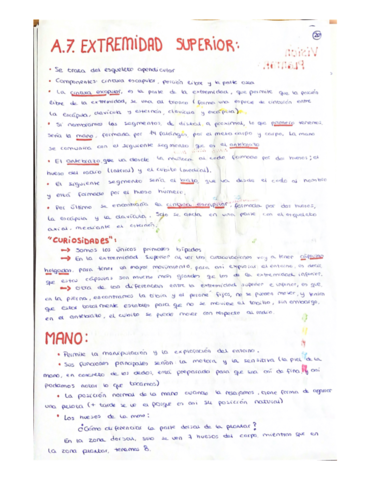 A.7. EXTREMIDAD SUPERIOR:
• Se trata del esqueleto apendicular
• Componentes: cintura escapular, porción libre y
• La cintura escapular, es la parte de la extremidad, que permite que la porción
libre de la extremidad, se una al tronco (forma una especie de cinturón entre
la escápula, clavícula y esternón, clavícula y escápula)
• Si nombramos los segmentos de distal a proximal, lo que primero tenemos
sería la mano, formada por 14 falanges, por el metacarpo y carpo. La mano
se comunica con el siguiente segmento que es el antebrazo
• El antebrazo, que va desde la muñeca al codo formado por dos huesos; el
hueso del radio (lateral) y el cúbito (medial).
• El siguiente segmento sería el brazo que va desde el codo al hombro
y está formado por el hueso húmero.
• Por último se encontraría la cintura escapular, formada por dos huesos,
la escápula y la clavícula. Solo se ancla en una parte con el esqueleto
axial, mediante el esternón.
"CURIOSIDADES":
→ Somos los únicos primates bípedos
→ En la extremidad superior al ver las articulaciones voy a tener cápsulas
holgadas, para tener un mayor movimiento, para
que estas cápsulas sea mucho más grandes que las de la extremidad inferior,
→ Otra de las diferencias entre la extremidad superior e inferior, es que,
en la pierna, encontramos la tibia y el peroné fijos, no se pueden mover, y tienen
que estar totalmente estables para que no se mueva el tobillo, sin embargo,
en el antebrazo, el cúbito se puede mover con respecto al radio.
MANO:
• Permite la manipulación y la exploración del entorno.
• Sus funciones principales serían la motora y la sensitiva (la piel de la
mano, en concreto de los dedos, está preparada para que sea así de fina, y así
podamos notar lo que tenemos)
• La posición normal de la mano cuando la relajamos, tiene forma de coger
una pelota (+ tarde se ve el porqué es así su posición natural)
• Los huesos de la mano:
¿Cómo diferenciar la parte dorsal de la palmar?
En la zona dorsal, solo se ven 7 huesos del carpo mientras que en
la zona palmar, tenemos 8.